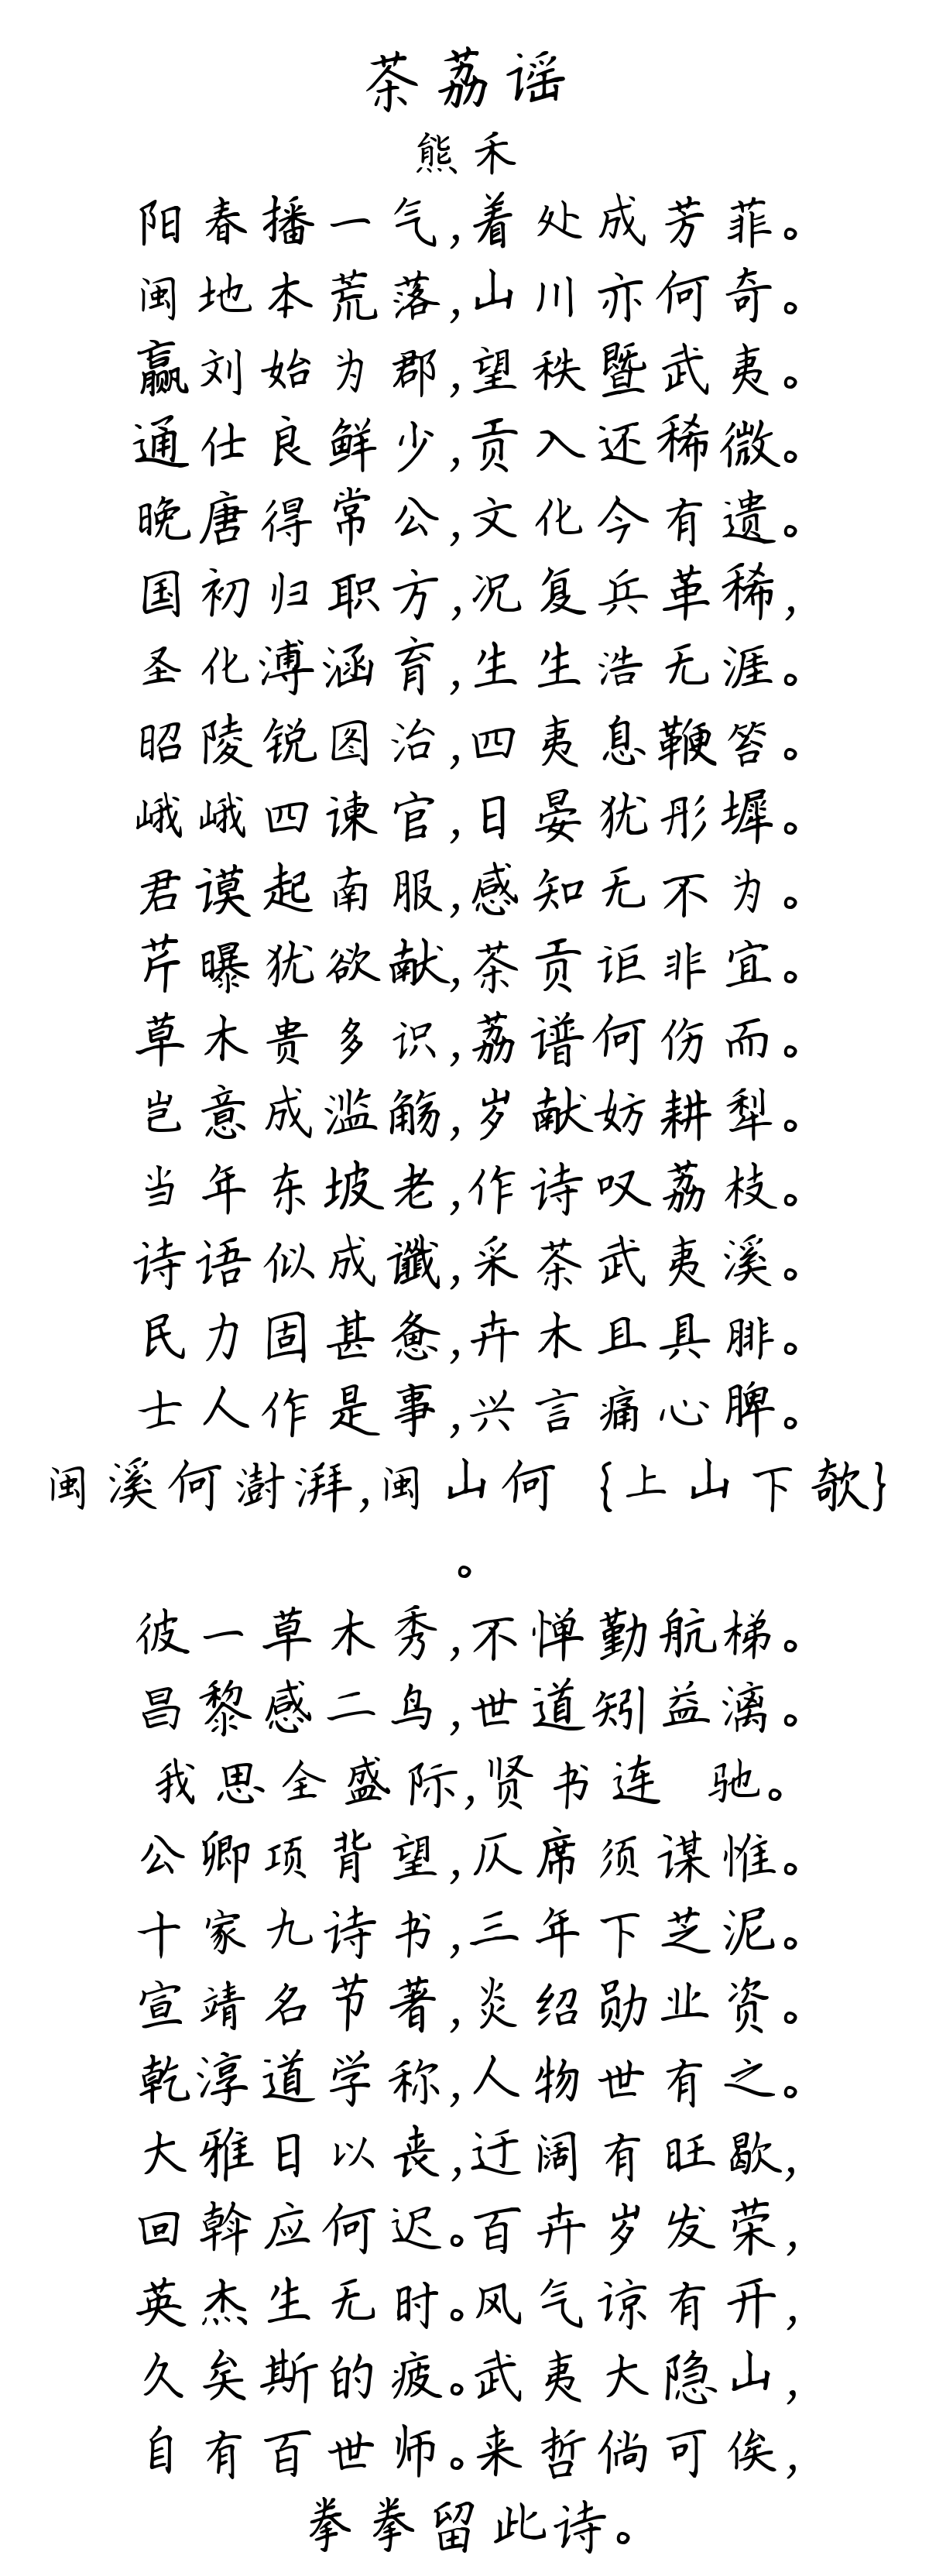 茶荔谣
熊禾
阳春播一气,着处成芳菲。
闽地本荒落,山川亦何奇。
赢刘始为郡,望秩暨武夷。
通仕良鲜少,贡入还稀微。
晚唐得常公,文化今有遗。
国初归职方,况复兵革稀,
圣化溥涵育,生生浩无涯。
昭陵锐图治,四夷息鞭笞。
峨峨四谏官,日晏犹彤墀。
君谟起南服,感知无不为。
芹曝犹欲献,茶贡讵非宜。
草木贵多识,荔谱何伤而。
岂意成滥觞,岁献妨耕犁。
当年东坡老,作诗叹荔枝。
诗语似成谶,采茶武夷溪。
民力固甚惫,卉木且具腓。
士人作是事,兴言痛心脾。
闽溪何澍湃,闽山何 {上山下欹}
。
彼一草木秀,不惮勤航梯。
昌黎感二鸟,世道矧益漓。
我思全盛际,贤书连 驰。
公卿项背望,仄席须谋惟。
十家九诗书,三年下芝泥。
宣靖名节著,炎绍勋业资。
乾淳道学称,人物世有之。
大雅日以丧,迂阔有旺歇,
回斡应何迟。百卉岁发荣,
英杰生无时。风气谅有开,
久矣斯的疲。武夷大隐山,
自有百世师。来哲倘可俟,
拳拳留此诗。